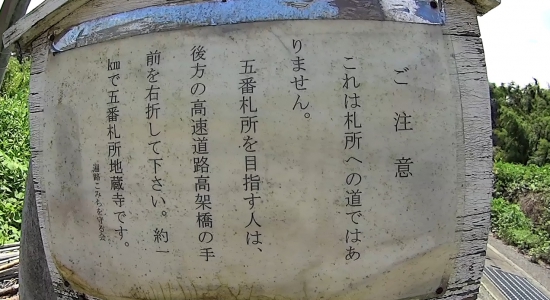 ご注意
これは札所への道ではあ
りません。
五番札所を目指す人は、
後方の高速道路高架橋の手
前を右折して下さい。約一
kmで五番札所地蔵寺です。
遍路こみちを守る会